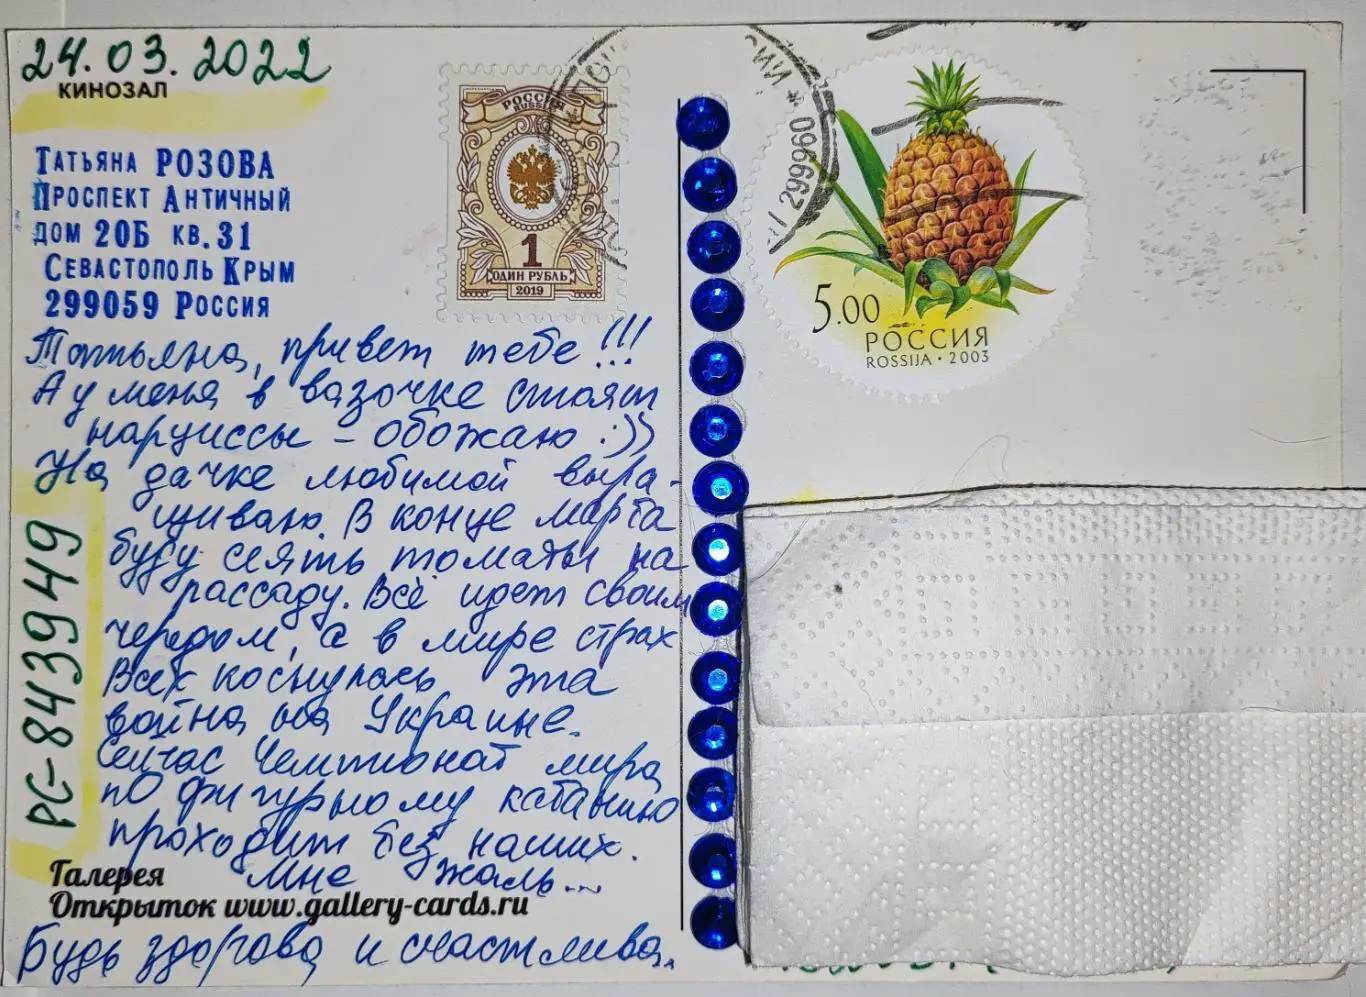 24.03.2022
КИНОЗАЛ
ТАТЬЯНА РОЗОВА
ПРОСПЕКТ АНТИЧНЫЙ
ДОМ 20Б КВ.31
СЕВАСТОПОЛЬ КРЫМ
299059 РОССИЯ
РОССИЯ
ROSSIJA
1
ОДИН РУБЛЬ
2019
299960
5.00
РОССИЯ
ROSSIJA · 2003
Татьяна, привет тебе!!!
А у меня в вазочке стоят
нарциссы – обожаю :))
На дачке любимой выра-
щиваю. В конце марта
буду сеять томаты на
рассаду. Всё идет своим
чередом, а в мире страх
Всех коснулась эта
война на Украине.
Сейчас Чемпионат мира
по фигурному катанию
проходит без наших.
Мне жаль...
Будь здорова и счастлива.
PC-843949
Галерея
Открыток www.gallery-cards.ru